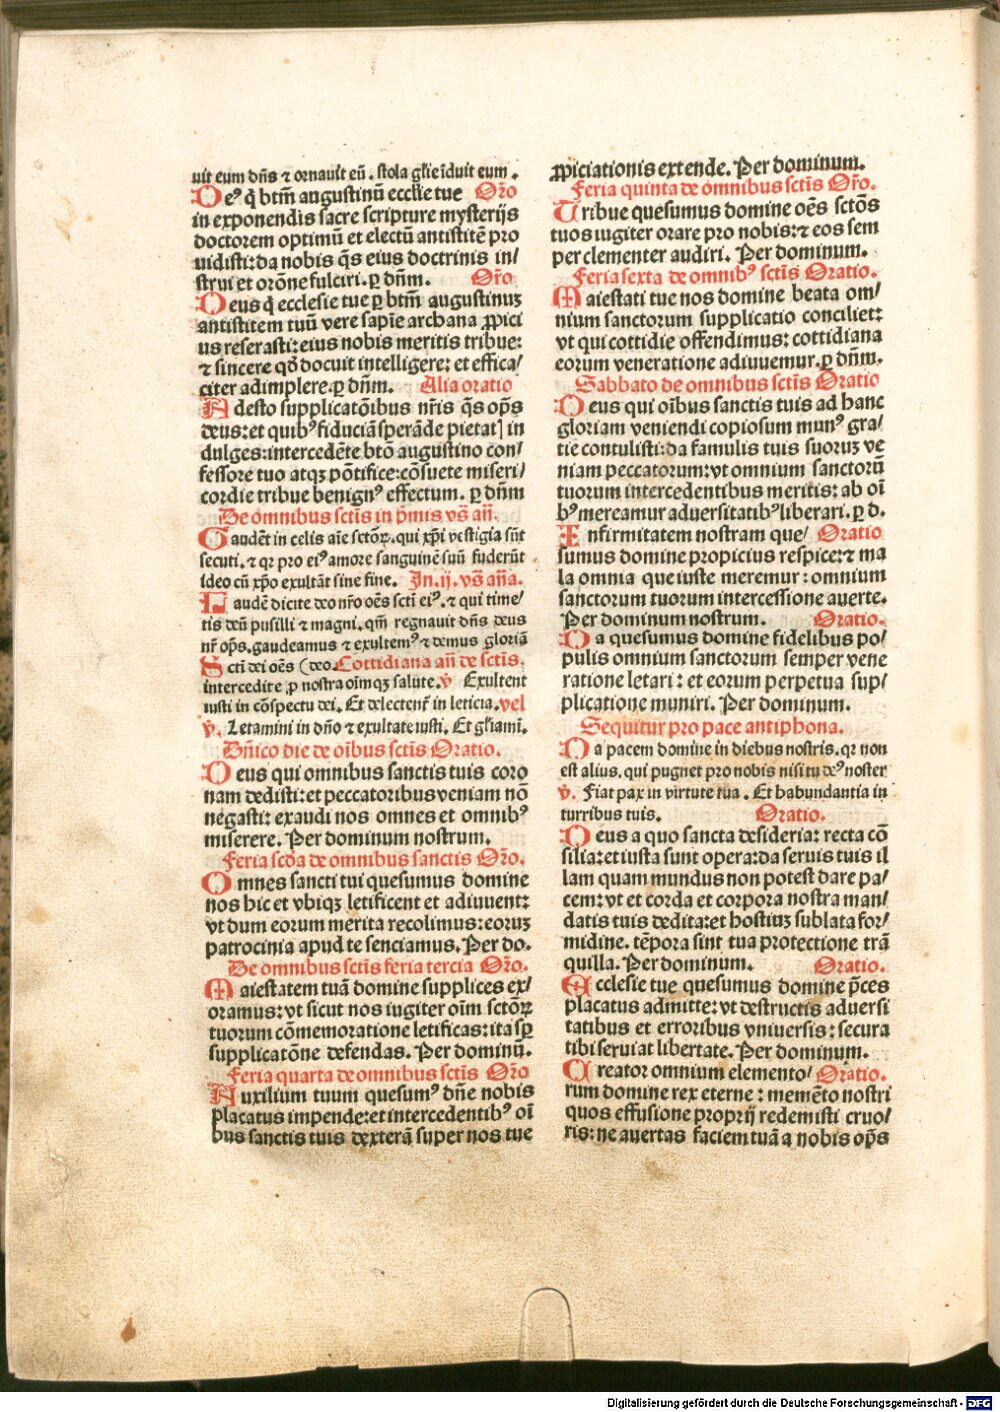 uit eum dñs ⁊ ornauit eũ. stola gl̃ie ĩduit eum.
Deꝰ q̃ btm̃ augustinũ eccl̃ie tue Or̃o
in exponendis sacre scripture mysterijs
doctorem optimũ et electũ antistitẽ pro
uidisti: da nobis q̃s eius doctrinis in/
strui et orõne fulciri. ꝑ dñm. Or̃o
Deus q̃ ecclesie tue ꝑ btm̃ augustinuꝫ
antistitem tuũ vere sapĩe archana ꝓpici
us reserasti: eius nobis meritis tribue:
⁊ sincere qđ docuit intelligere: et effica/
citer adimplere. ꝑ dñm. Alia oratio
Adesto supplicatõibus nr̃is q̃s op̃s
deus: et quibꝰ fiduciã sperãde pietatꝭ in
dulges: intercedẽte btõ augustino con/
fessore tuo atqꝫ põtifice: cõsuete miseri/
cordie tribue benignꝰ effectum. ꝑ dñm
De omnibus sctĩs in p̃mis vs̃ añ.
Gaudẽt in celis aĩe sctõꝝ. qui xp̃i vestigia sũt
secuti. ⁊ qꝛ pro eiꝰ amore sanguinẽ suũ fuderũt
ideo cũ xp̃o exultãt sine fine. In. ij. vs̃ añа.
Laudẽ dicite deo nr̃o oẽs sctĩ eiꝰ. ⁊ qui time/
tis deũ pusilli ⁊ magni. qm̃ regnauit dñs deus
nr̃ op̃s. gaudeamus ⁊ exultemꝰ ⁊ demus gloriã
Sctĩ dei oẽs (deo. Cottidiana añ de sctĩs.
intercedite ꝓ nostra oĩmqꝫ salute. ṽ Exultent
iusti in cõspectu dei. Et delectent̃ in leticia. vel
ṽ. Letamini in dño ⁊ exultate iusti. Et gl̃iamĩ.
Dñico die de oĩbus sctĩs Oratio.
Deus qui omnibus sanctis tuis coro
nam dedisti: et peccatoribus veniam nõ
negasti: exaudi nos omnes et omnibꝰ
miserere. Per dominum nostrum.
Feria scđa de omnibus sanctis Or̃o.
Omnes sancti tui quesumus domine
nos hic et vbiqꝫ letificent et adiuuent:
vt dum eorum merita recolimus: eoruꝫ
patrocinia apud te senciamus. Per do.
De omnibus sctĩs feria tercia Or̃o.
Maiestatem tuã domine supplices ex/
oramus: vt sicut nos iugiter oĩm sctõꝝ
tuorum cõmemoratione letificas: ita sꝑ
supplicatõne defendas. Per dominũ.
Feria quarta de omnibus sctĩs Or̃o
Auxilium tuum quesumꝰ dñe nobis
placatus impende: et intercedentibꝰ oĩ
bus sanctis tuis dexterã super nos tue
ꝓpiciationis extende. Per dominum.
Feria quinta de omnibus sctĩs Or̃o.
Tribue quesumus domine oẽs sctõs
tuos iugiter orare pro nobis: ⁊ eos sem
per clementer audiri. Per dominum.
Feria sexta de omnibꝰ sctĩs Oratio.
Maiestati tue nos domine beata om/
nium sanctorum supplicatio conciliet:
vt qui cottidie offendimus: cottidiana
eorum veneratione adiuuemur. ꝑ dñm.
Sabbato de omnibus sctĩs Oratio
Deus qui oĩbus sanctis tuis ad hanc
gloriam veniendi copiosum munꝰ gra/
tie contulisti: da famulis tuis suoruꝫ ve
niam peccatorum: vt omnium sanctorũ
tuorum intercedentibus meritis: ab oĩ
bꝰ mereamur aduersitatibꝰ liberari. ꝑ d.
Infirmitatem nostram que/ Oratio
sumus domine propicius respice: ⁊ ma
la omnia que iuste meremur: omnium
sanctorum tuorum intercessione auerte.
Per dominum nostrum. Oratio.
Da quesumus domine fidelibus po/
pulis omnium sanctorum semper vene
ratione letari: et eorum perpetua sup/
plicatione muniri. Per dominum.
Sequitur pro pace antiphona.
Da pacem domine in diebus nostris. qꝛ non
est alius. qui pugnet pro nobis nisi tu deꝰ noster
ṽ. Fiat pax in virtute tua. Et habundantia in
turribus tuis. Oratio.
Deus a quo sancta desideria: recta cõ
silia: et iusta sunt opera: da seruis tuis il
lam quam mundus non potest dare pa/
cem: vt et corda et corpora nostra man/
datis tuis dedita: et hostiuꝫ sublata for/
midine. tẽpora sint tua protectione trã
quilla. Per dominum. Oratio.
Ecclesie tue quesumus domine p̃ces
placatus admitte: vt destructis aduersi
tatibus et erroribus vniuersis: secura
tibi seruiat libertate. Per dominum.
Creator omnium elemento/ Oratio.
rum domine rex eterne: memẽto nostri
quos effusione proprij redemisti cruo/
ris: ne auertas faciem tuã a nobis op̃s
Digitalisierung gefördert durch die Deutsche Forschungsgemeinschaft - DFG